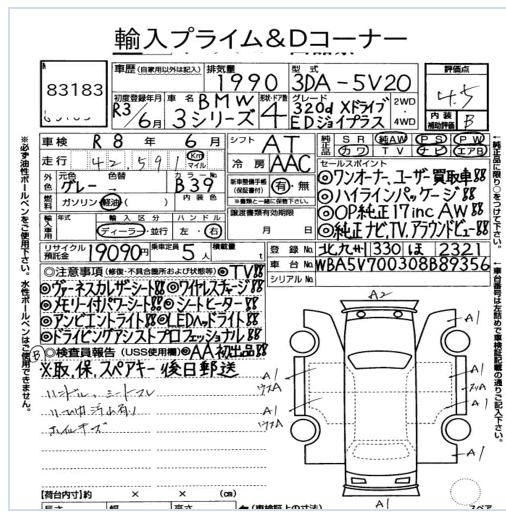 輸入プライム＆Dコーナー
83183
車歴 (自家用以外は記入)
排気量 1990
型式 3DA-5V20
評価点 4.5
内装補助評価 B
初度登録年月 R3年/6月
車名 BMW 3シリーズ
形状・ドア数 4
グレード 320d Xドライブ EDジョイプラス
2WD・4WD
車検 R8年6月
シフト AT
純正品 SR 純AW PS PW カワ TV ナビ エアB
走行 42,591 Km マイル
冷房 AAC
外色 元色 グレー→ 色替 カラーNo B39
燃料 ガソリン・軽油・( ) 内装色
新車整備手帳(保証書付) 有・無
セールスポイント
◎ワンオーナー、ユーザー買取車!!
◎ハイラインパッケージ!!
◎OP純正17incAW!!
◎純正ナビ、TV、アラウンドビュー!!
輸入車用 年式 輸入区分 ディーラー・並行 ハンドル 左・右
譲渡書類有効期限 月 日
リサイクル預託金 19090円
乗車定員 5人
積載量 t
登録No. 北九州 330 ほ 2321
車台No. WBA5V700308B89356
シリアルNo.
◎注意事項(修復・不具合箇所および状態等)◎TV!!
◎ヴァーネスカレザーシート!!◎ワイヤレスチャージ!!
◎メモリー付パワーシート!!◎シートヒーター!!
◎アンビエントライト!!◎LEDヘッドライト!!
◎ドライビングアシストプロフェッショナル!!
B ◎検査員報告(USS使用欄)◎AA初出品!!
※取、保、スペアキー後日郵送
ハンドル、シートスレ
ホイルキズ
A2
A1
A1
ウスA
A1
ウスA
A1
A1
A1
A1
A1
【荷台内寸】約 × × (cm)
スペア
※必ず油性ボールペンをご使用下さい。水性ボールペンはご使用できません。
↑純正品に限り○をつけて下さい。
↑車台番号は左詰めで車検証記載の通りご記入下さい。